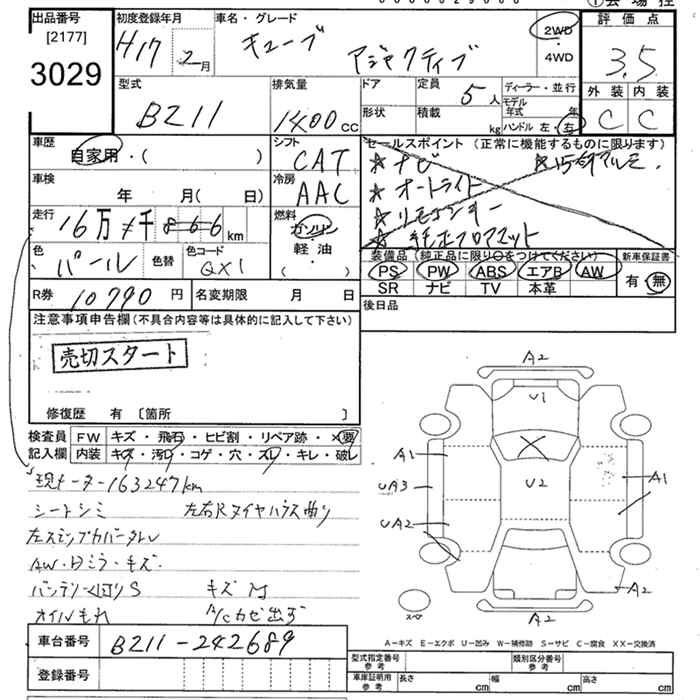 出品番号
[2177]
3029
初度登録年月
H17 2月
車名・グレード
キューブ アジャクティブ
2WD
・
4WD
評価点
3.5
外装 内装
C C
型式
BZ11
排気量
1400cc
ドア
形状
定員
5人
積載
kg
ディーラー・並行
モデル年式 年
ハンドル 左・右
車歴
自家用・( )
シフト
CAT
車検
年 月( 日)
冷房
AAC
走行
km
燃料
ガソリン
軽油
( ・ )
色
パール
色替
色コード
QX1
R券
10790円
名変期限 月 日
セールスポイント(正常に機能するものに限ります)
☆ナビ
☆15インチアルミ.
☆オートライト
☆リモコンキー
☆純正フロアマット
装備品(純正品に限り○をつけてください)
PS PW ABS エアB AW
SR ナビ TV 本革
新車保証書
有・無
後日品
注意事項申告欄(不具合内容等は具体的に記入して下さい)
売切スタート
修復歴 有 〔箇所 〕
検査員
記入欄
FW キズ・飛石・ヒビ割・リペア跡・X要
内装 キズ・汚レ・コゲ・穴・スレ・キレ・破レ
現メーター163247km
シートシミ 左右Rタイヤハウス曲り
左ステップカバーワレ
AW・Dミラーキズ.
オイルもれ A/Cカゼ出ず
車台番号
BZ11-242689
登録番号
A2
U1
U2
A1
UA3
UA2
A1
A2
スペア
A2
A-キズ E-エクボ U-凹み W-補修跡 S-サビ C-腐食 XX-交換済
型式指定番号
参考
類別区分番号
参考
車庫証明用
参考
長さ cm 幅 cm 高さ cm